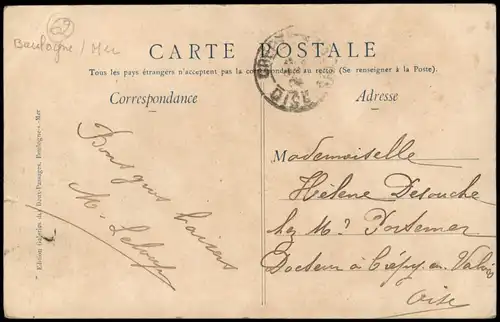 62
Boulogne / Mer
CARTE POSTALE
Tous les pays étrangers n'acceptent pas la correspondance au recto. (Se renseigner à la Poste).
Correspondance
Adresse
Edition Galeries des Vieux-Passages, Boulogne-s-Mer
Bons gros baisers
M.
Mademoiselle
Hélène Desouche
chez Mr Portemer
Docteur à Crépy en Valois
Oise
OISE